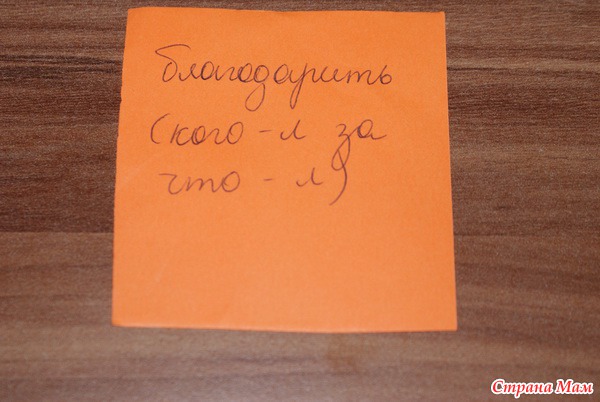 благодарить
(кого-л за
что-л)
Страна Мам